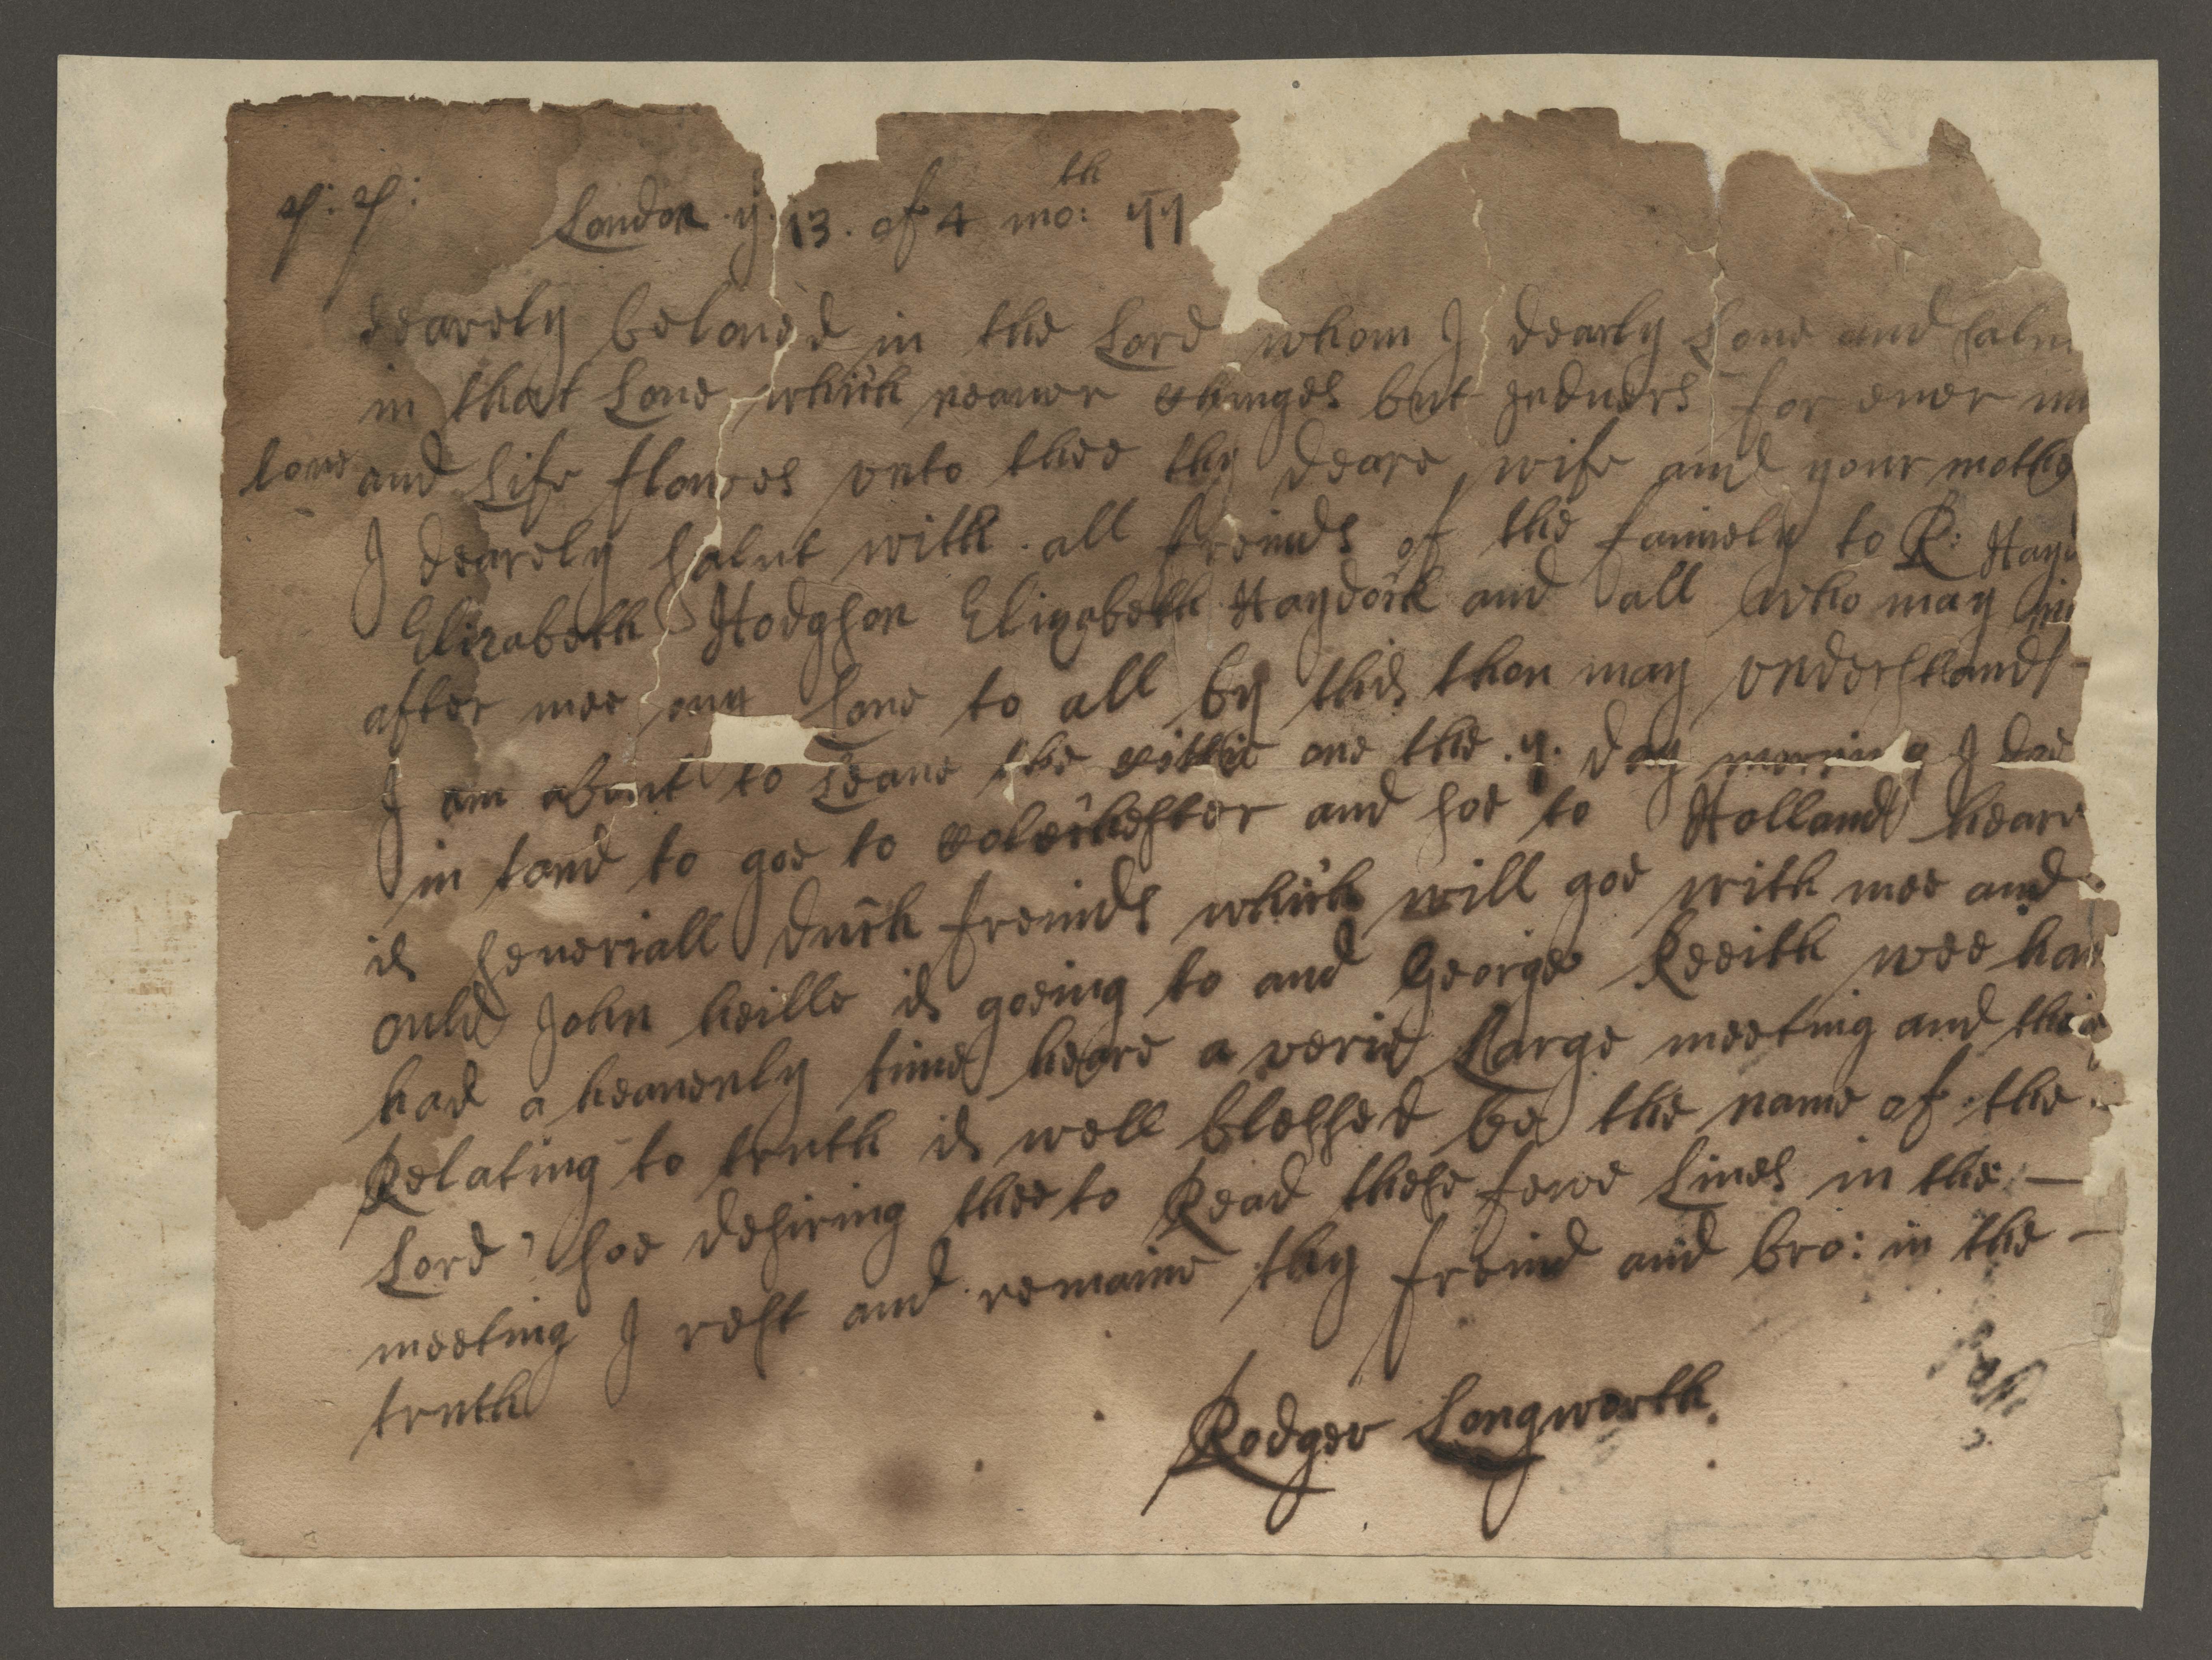 P: P: London y 13. of 4th mo: 77
dearely beloued in the Lord whom I dearly Loue and salu
in that Loue which neauer chinges but Jnduers for euer
loue and Life flowes vnto thee thy deare wife and your mothe
I dearely salut with all freinds of the famely to R: Hayd
Elizabeth Hodgson Elizabeth Haydock and all who may in
after mee my Loue to all by this thou may vnderstand
I am about to Leaue the cittie one the .7. day morning I doe
in tend to goe to colechester and soe to Holland heare
is seueriall duch freinds which will goe with mee and
ould John heille is goeing to and George Keeith wee hau
had a heauenly time heare a verie Large meeting and thin
Relating to truth is well blessed be the name of the
Lord soe desiring thee to Read these fewe Lines in the
meeting I rest and remaine thy freind and bro: in the
truth
Rodger Longworth